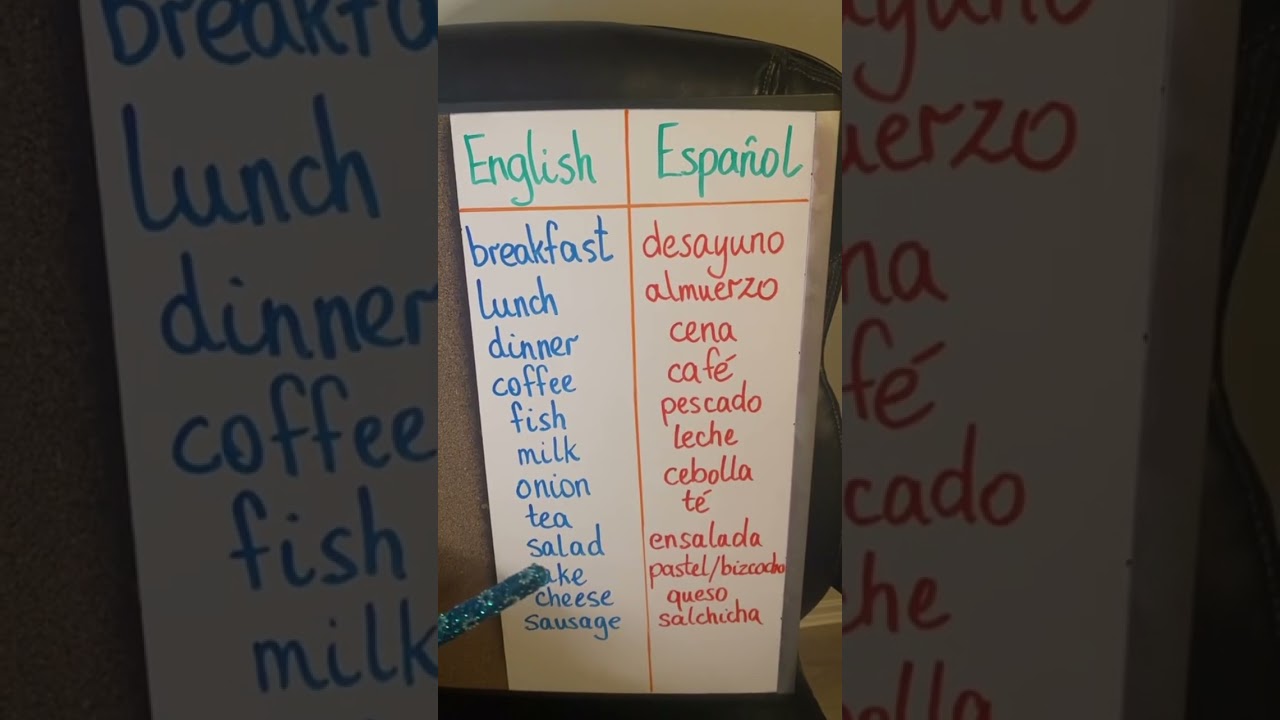 English Español
breakfast desayuno
lunch almuerzo
dinner cena
coffee café
fish pescado
milk leche
onion cebolla
tea té
salad ensalada
ake pastel/bizcocho
cheese queso
sausage salchicha